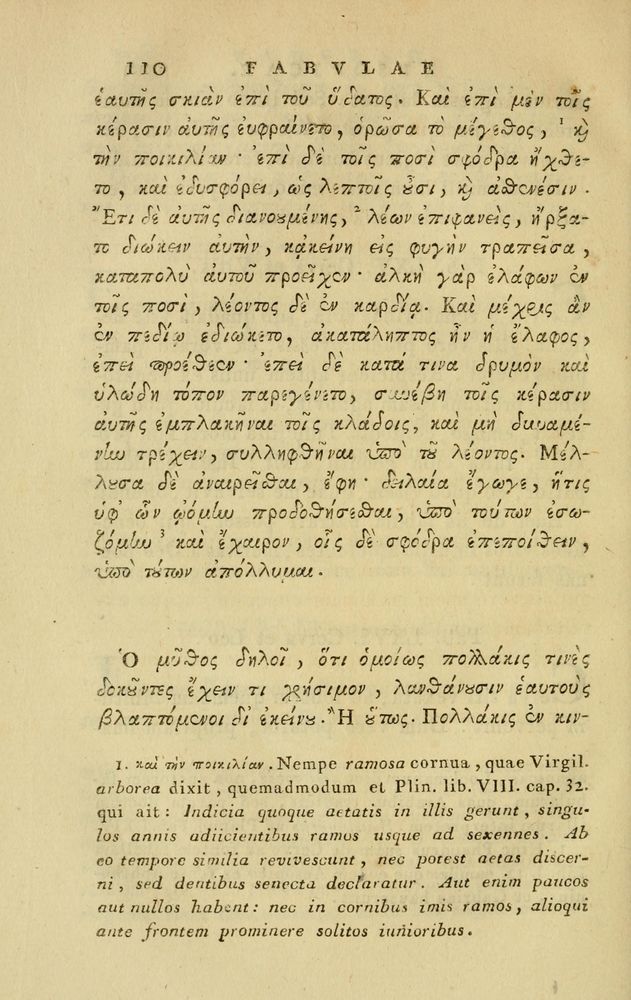 110 FABVLAE
ἑαυτῆς σκιὰν ἐπὶ τοῦ ὕδατος. Καὶ ἐπὶ μὲν τοῖς
κέρασιν ἀυτῆς ἐυφραίνετο, ὁρῶσα τὸ μέγεθος, ¹ ϗ
τὴν ποικιλίαν· ἐπὶ δὲ τοῖς ποσὶ σφόδρα ἤχθε-
το, καὶ ἐδυσφόρει, ὡς λεπτοῖς ȣσι, ϗ ἀσθενέσιν.
Ἔτι δὲ ἀυτῆς διανοȣμένης, ² λέων ἐπιφανεὶς, ἤρξα-
το διώκειν ἀυτὴν, κᾀκείνη εἰς φυγὴν τραπεῖσα,
καταπολὺ ἀυτοῦ προεῖχεν· ἀλκὴ γὰρ ἐλάφων ἐν
τοῖς ποσὶ, λέοντος δὲ ἐν καρδίᾳ. Καὶ μέχρις ἂν
ἐν πεδίῳ ἐδιώκετο, ἀκατάληπτος ἦν ἡ ἔλαφος,
ἐπεὶ προέθεεν· ἐπεὶ δὲ κατά τινα δρυμὸν καὶ
ὑλώδη τόπον παρεγένετο, συνέβη τοῖς κέρασιν
ἀυτῆς ἐμπλακῆναι τοῖς κλάδοις, καὶ μὴ δυναμέ-
νην τρέχειν, συλληφθῆναι ὑπὸ τȣ͂ λέοντος. Μέλ-
λȣσα δὲ ἀναιρεῖσθαι, ἔφη· δειλαία ἔγωγε, ἥτις
ὑφ' ὧν ᾠόμην προδοθήσεσθαι, ὑπὸ τούτων ἐσω-
ζόμην ³ καὶ ἔχαιρον, οἷς δὲ σφόδρα ἐπεποίθειν,
ὑπὸ τȣ́των ἀπόλλυμαι.
Ὁ μῦθος δηλοῖ, ὅτι ὁμοίως πολλάκις τινὲς
δοκȣ͂ντες ἔχειν τι χρήσιμον, λανθάνȣσιν ἑαυτοὺς
βλαπτόμενοι δι' ἐκείνȣ. Ἢ ȣ̔́τως. Πολλάκις ἐν κιν-
1. καὶ τὴν ποικιλίαν. Nempe ramosa cornua, quae Virgil.
arborea dixit, quemadmodum et Plin. lib. VIII. cap. 32.
qui ait: Indicia quoque aetatis in illis gerunt, singu-
los annis adiicientibus ramos usque ad sexennes. Ab
eo tempore similia revivescunt, nec potest aetas discer-
ni, sed dentibus senecta declaratur. Aut enim paucos
aut nullos habent: nec in cornibus imis ramos, alioqui
ante frontem prominere solitos iunioribus.